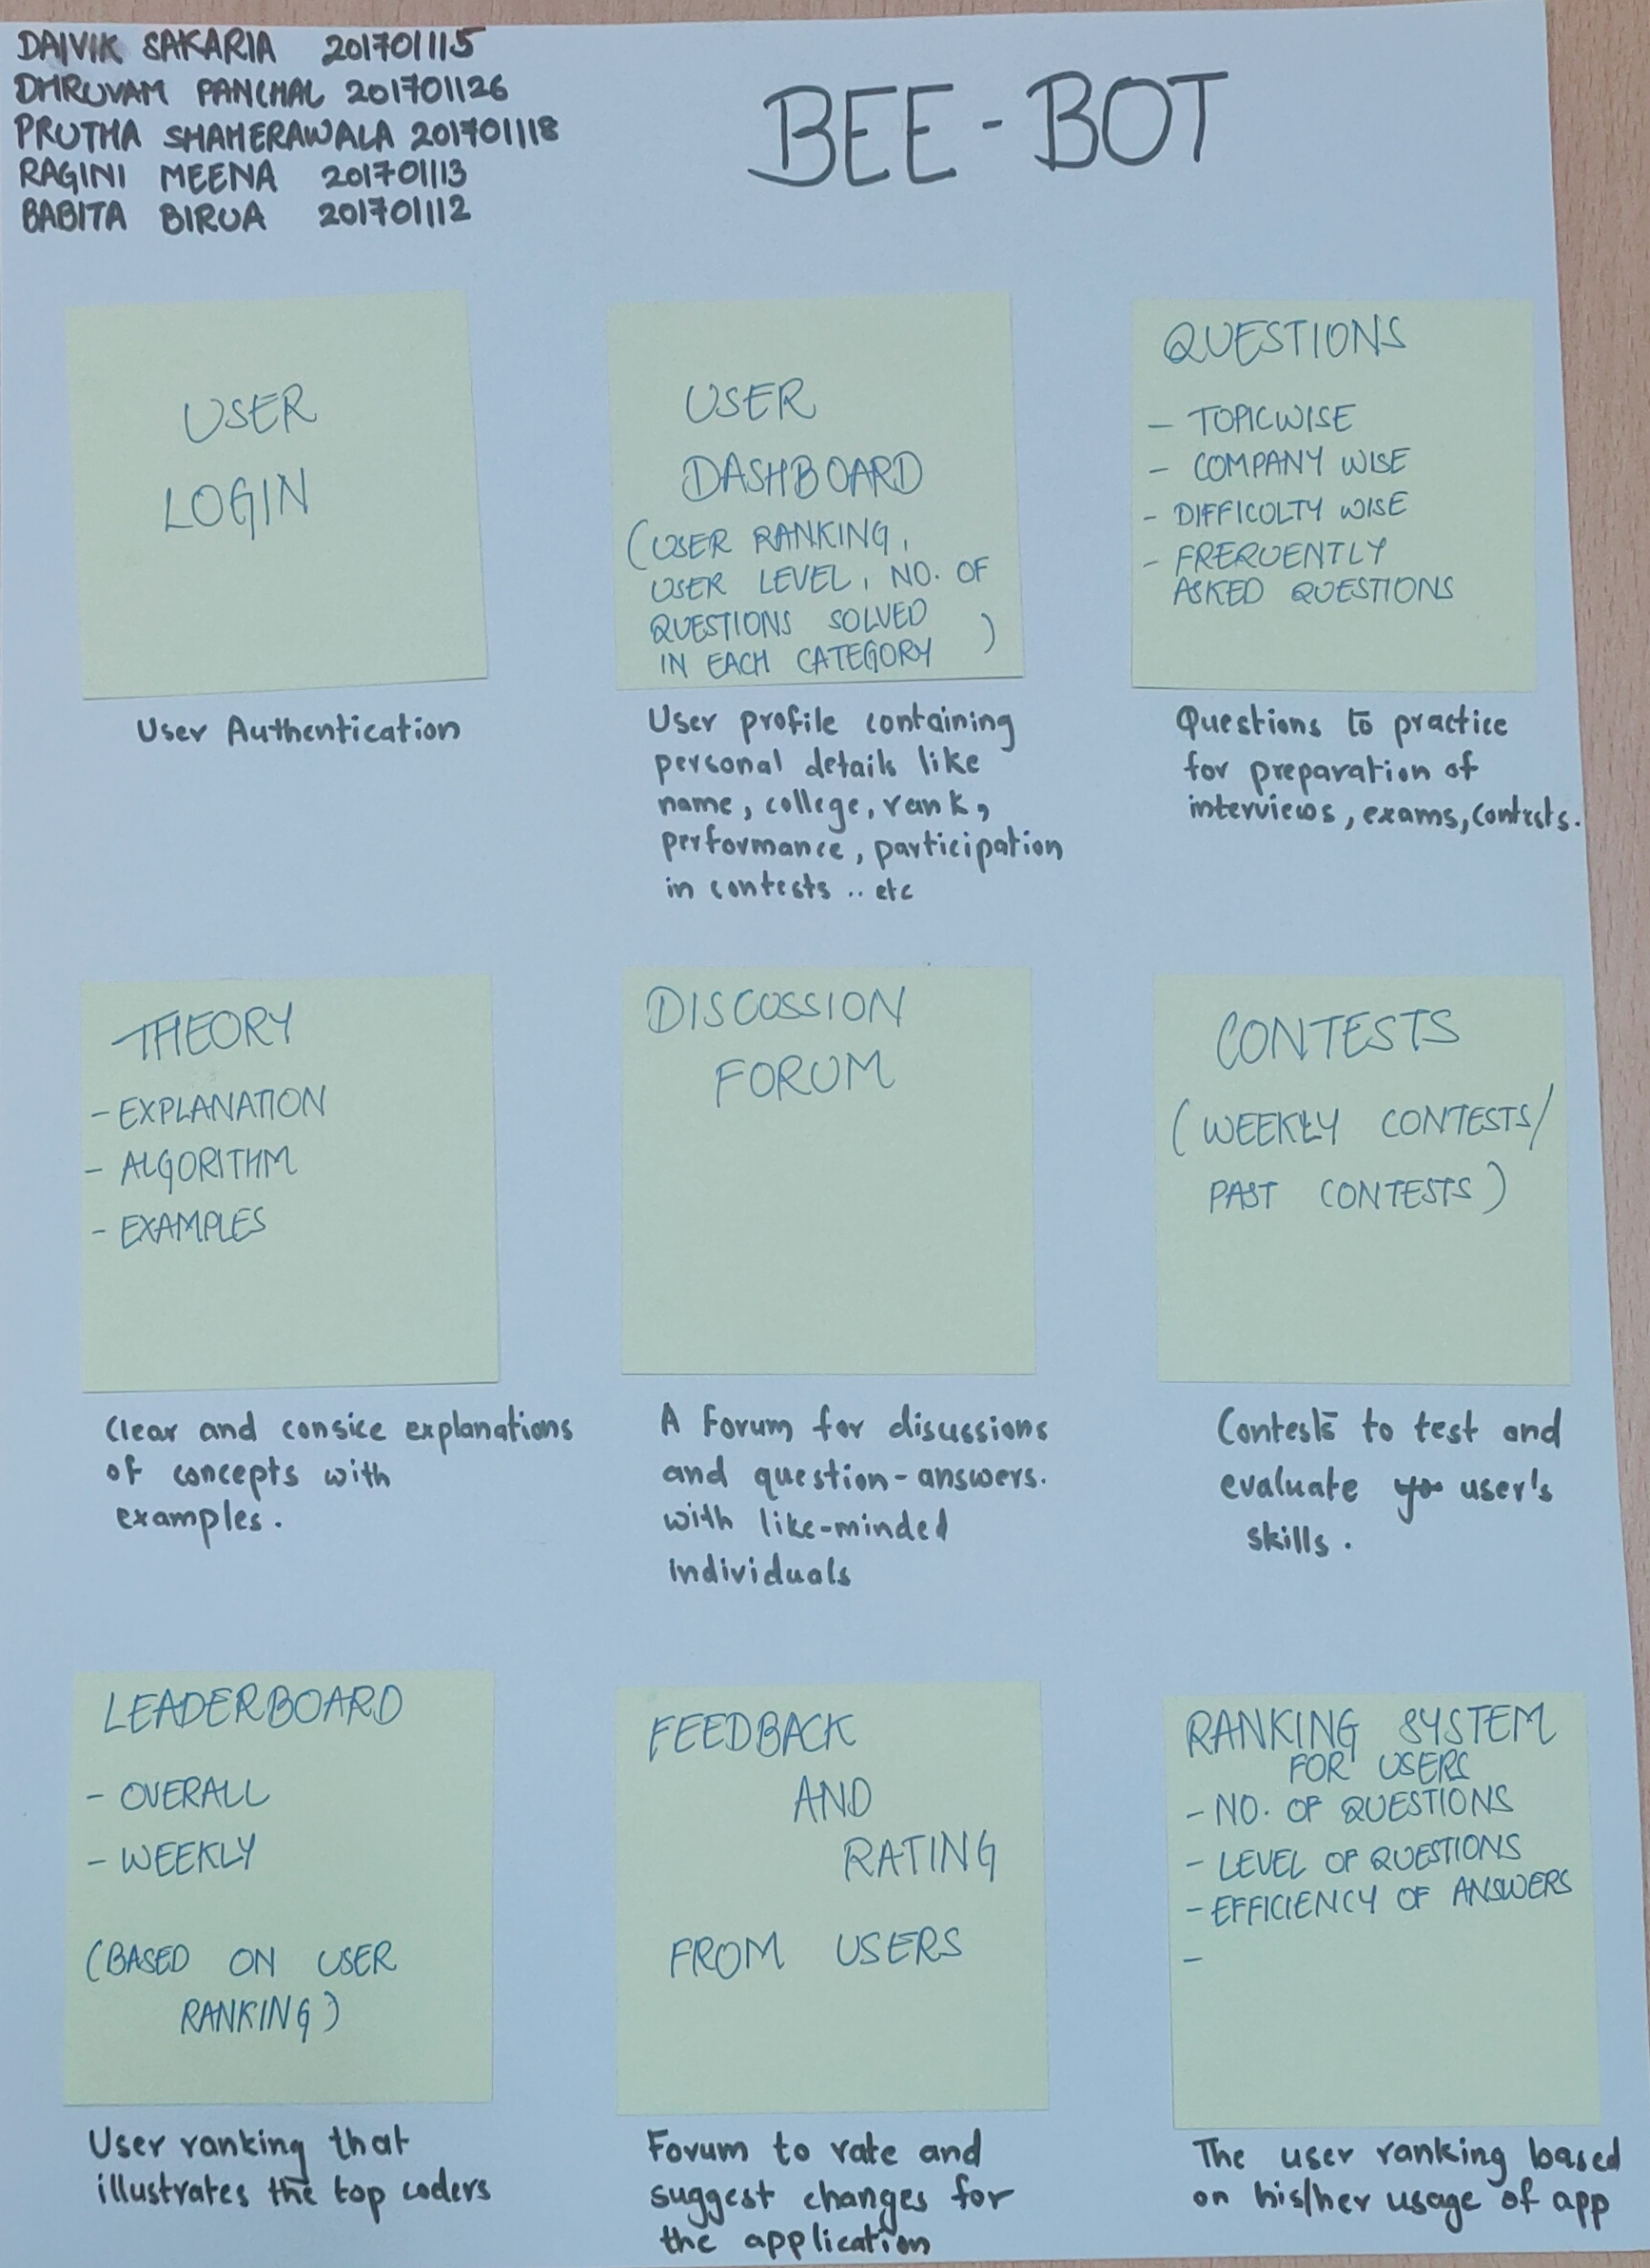 DAIVIK SAKARIA 201701115
DHRUVAM PANCHAL 201701126
PRUTHA SHAHERAWALA 201701118
RAGINI MEENA 201701113
BABITA BIRUA 201701112
BEE-BOT
USER
LOGIN
User Authentication
USER
DASHBOARD
(USER RANKING,
USER LEVEL, NO. OF
QUESTIONS SOLVED
IN EACH CATEGORY )
User profile containing
personal details like
name, college, rank,
performance, participation
in contests .. etc
QUESTIONS
- TOPICWISE
- COMPANY WISE
- DIFFICULTY WISE
- FREQUENTLY
ASKED QUESTIONS
Questions to practice
for preparation of
interviews, exams, contests.
THEORY
- EXPLANATION
- ALGORITHM
- EXAMPLES
Clear and consice explanations
of concepts with
examples.
DISCUSSION
FORUM
A Forum for disussions
and question-answers.
with like-minded
individuals
CONTESTS
(WEEKLY CONTESTS/
PAST CONTESTS)
Contests to test and
evaluate yo user's
skills.
LEADERBOARD
- OVERALL
- WEEKLY
(BASED ON USER
RANKING)
User ranking that
illustrates the top coders
FEEDBACK
AND
RATING
FROM USERS
Forum to rate and
suggest changes for
the application
RANKING SYSTEM
FOR USERS
- NO. OF QUESTIONS
- LEVEL OF QUESTIONS
- EFFICIENCY OF ANSWERS
-
The user ranking based
on his/her usage of app